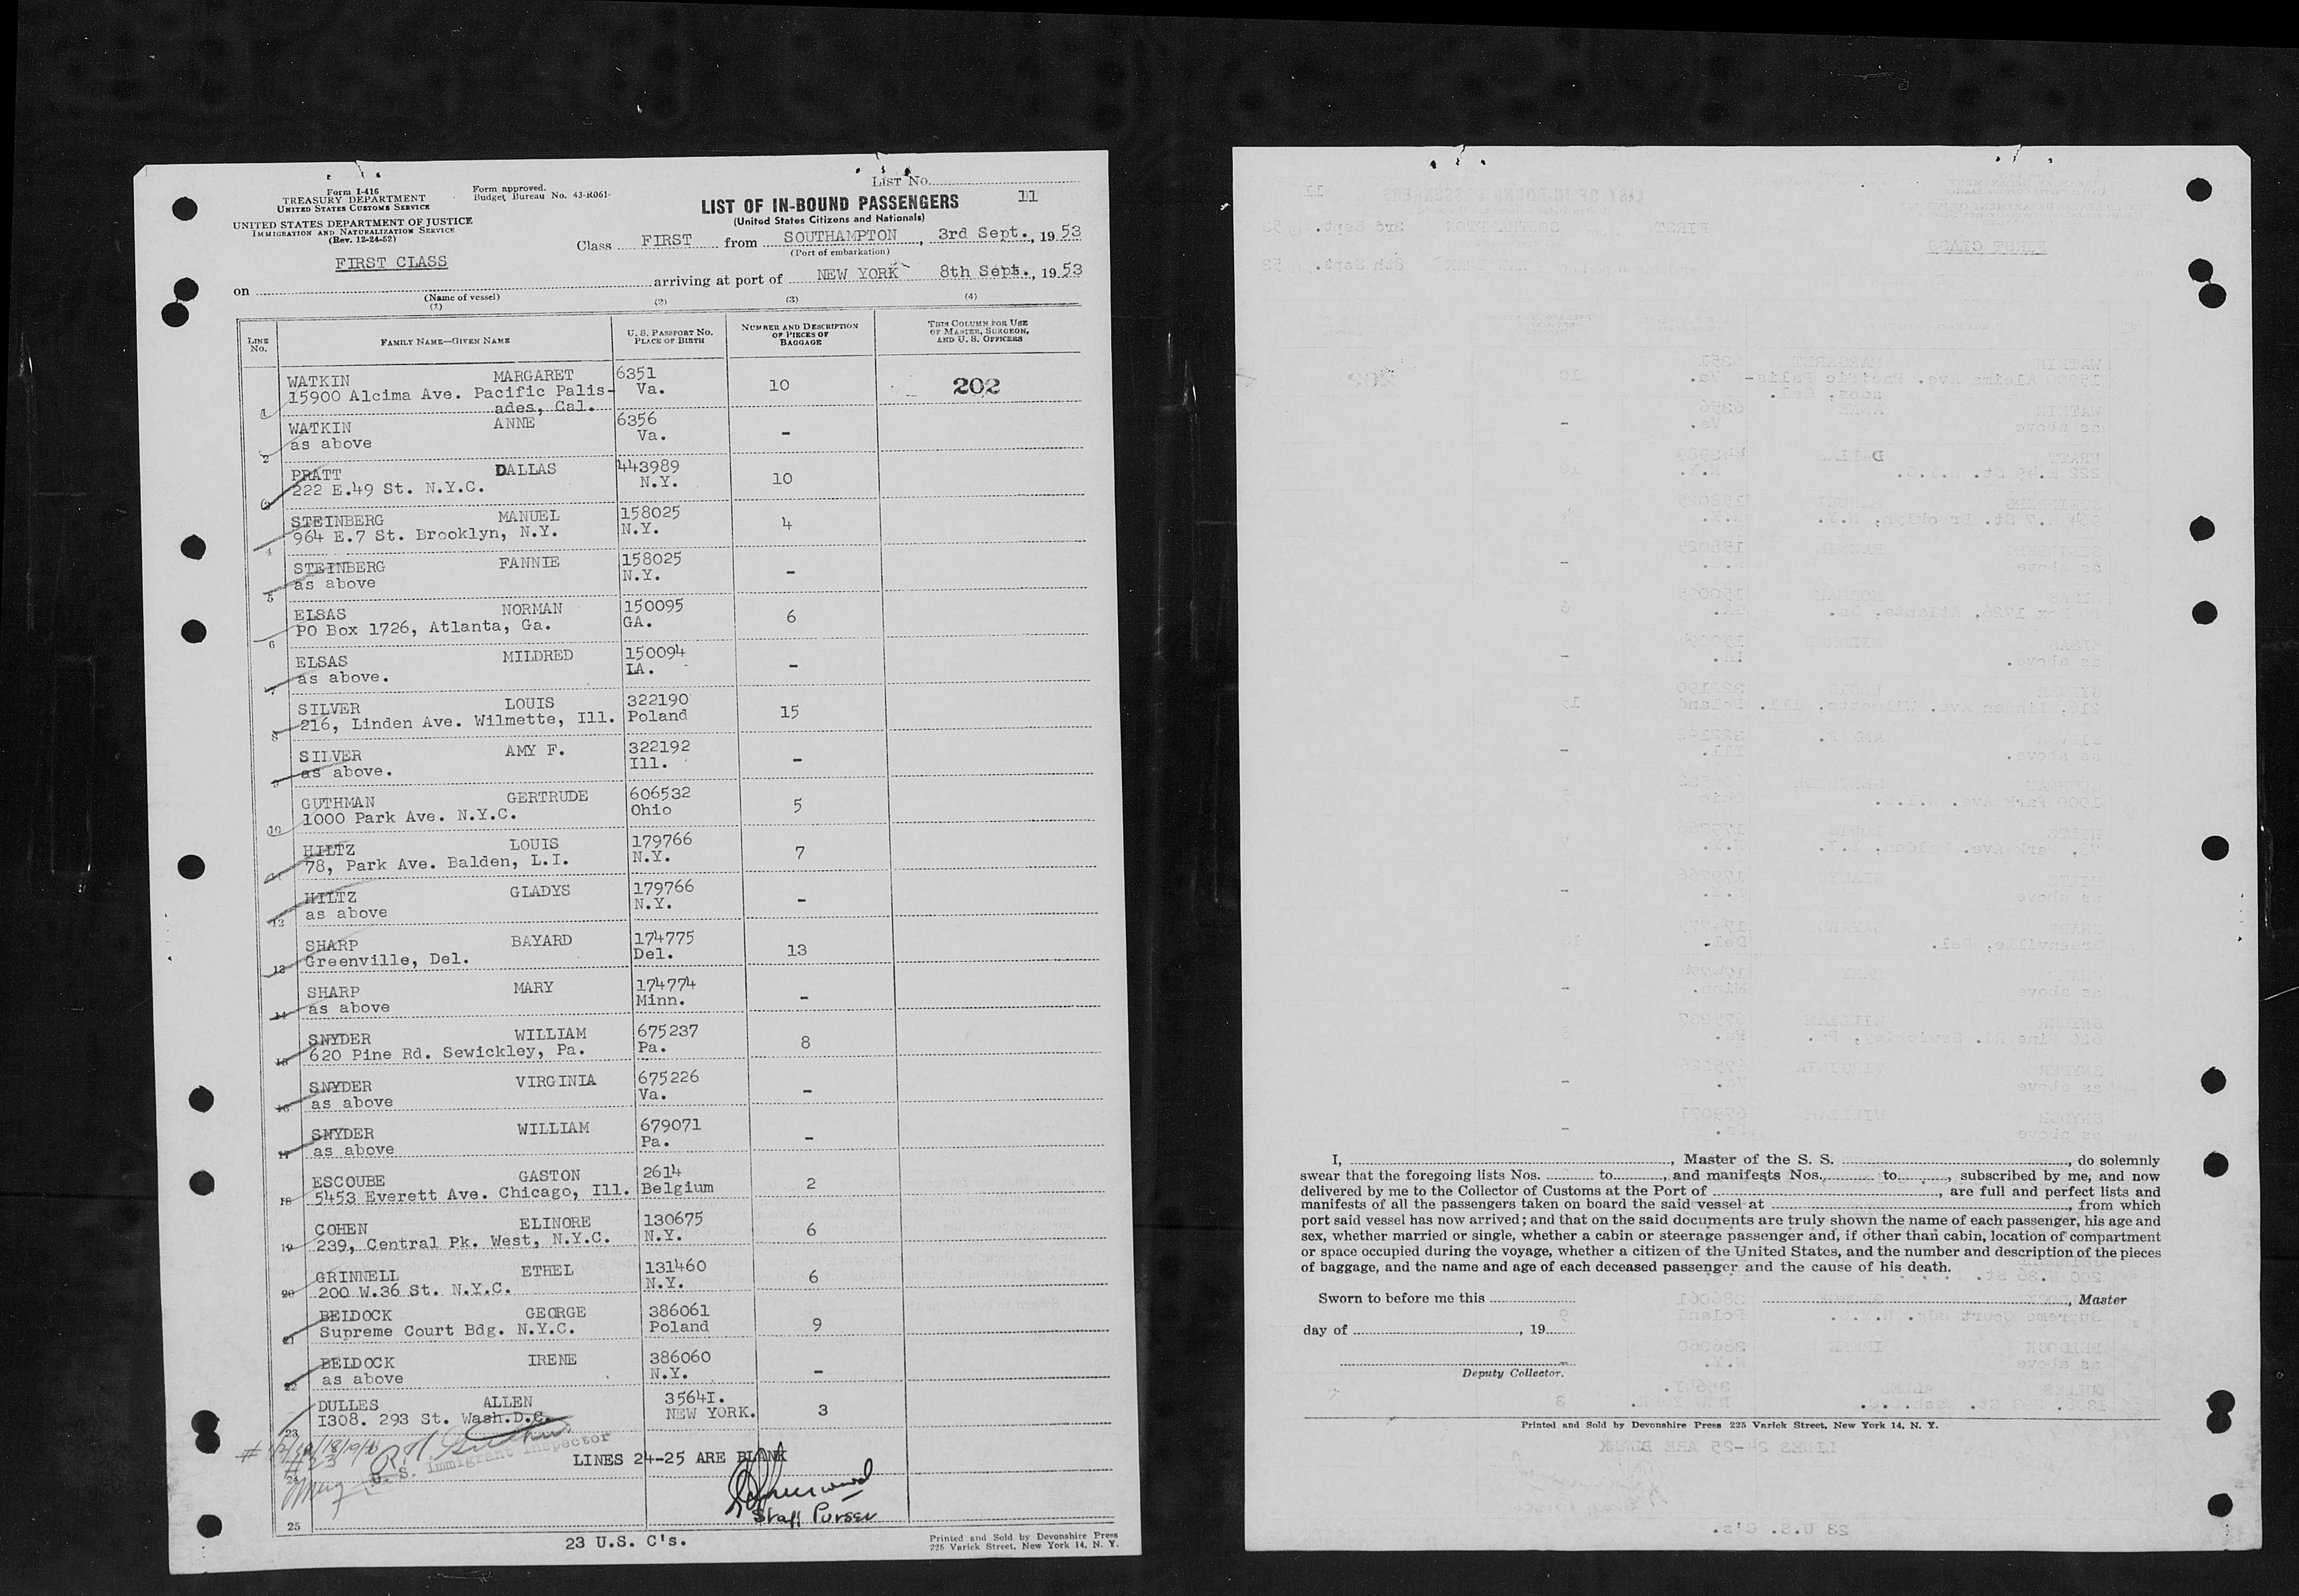 Form I-416
TREASURY DEPARTMENT
UNITED STATES CUSTOMS SERVICE
UNITED STATES DEPARTMENT OF JUSTICE
IMMIGRATION AND NATURALIZATION SERVICE
(Rev. 12-24-52)
FIRST CLASS
Form approved.
Budget Bureau No. 43-R061.
LIST No.
11
LIST OF IN-BOUND PASSENGERS
(United States Citizens and Nationals)
Class FIRST from SOUTHAMPTON, 3rd Sept., 1953
(Port of embarkation)
on arriving at port of NEW YORK 8th Sept., 1953
(Name of vessel)
(1) (2) (3) (4)
LINE No. FAMILY NAME—GIVEN NAME U. S. PASSPORT NO. PLACE OF BIRTH NUMBER AND DESCRIPTION OF PIECES OF BAGGAGE THIS COLUMN FOR USE OF MASTER, SURGEON, AND U. S. OFFICERS
1 WATKIN MARGARET 6351 10 202
15900 Alcima Ave. Pacific Palis- Va.
ades, Cal.
2 WATKIN ANNE 6356 -
as above Va.
3 PRATT DALLAS 443989 10
222 E.49 St. N.Y.C. N.Y.
4 STEINBERG MANUEL 158025 4
964 E.7 St. Brooklyn, N.Y. N.Y.
5 STEINBERG FANNIE 158025 -
as above N.Y.
6 ELSAS NORMAN 150095 6
PO Box 1726, Atlanta, Ga. GA.
7 ELSAS MILDRED 150094 -
as above. LA.
8 SILVER LOUIS 322190 15
216, Linden Ave. Wilmette, Ill. Poland
9 SILVER AMY F. 322192 -
as above. Ill.
10 GUTHMAN GERTRUDE 606532 5
1000 Park Ave. N.Y.C. Ohio
11 HILTZ LOUIS 179766 7
78, Park Ave. Balden, L.I. N.Y.
12 HILTZ GLADYS 179766 -
as above N.Y.
13 SHARP BAYARD 174775 13
Greenville, Del. Del.
14 SHARP MARY 174774 -
as above Minn.
15 SNYDER WILLIAM 675237 8
620 Pine Rd. Sewickley, Pa. Pa.
16 SNYDER VIRGINIA 675226 -
as above Va.
17 SNYDER WILLIAM 679071 -
as above Pa.
18 ESCOUBE GASTON 2614 2
5453 Everett Ave. Chicago, Ill. Belgium
19 COHEN ELINORE 130675 6
239, Central Pk. West, N.Y.C. N.Y.
20 GRINNELL ETHEL 131460 6
200 W.36 St. N.Y.C. N.Y.
21 BEIDOCK GEORGE 386061 9
Supreme Court Bdg. N.Y.C. Poland
22 BELDOCK IRENE 386060 -
as above N.Y.
23 DULLES ALLEN 3564I. 3
I308. 293 St. Wash.D.C. NEW YORK.
#23
U. S. Immigrant Inspector
24 LINES 24-25 ARE BLANK
Staff Purser
25
23 U.S. C's.
Printed and Sold by Devonshire Press
225 Varick Street, New York 14, N. Y.
I, , Master of the S. S. , do solemnly
swear that the foregoing lists Nos. to , and manifests Nos. to , subscribed by me, and now
delivered by me to the Collector of Customs at the Port of , are full and perfect lists and
manifests of all the passengers taken on board the said vessel at , from which
port said vessel has now arrived; and that on the said documents are truly shown the name of each passenger, his age and
sex, whether married or single, whether a cabin or steerage passenger and, if other than cabin, location of compartment
or space occupied during the voyage, whether a citizen of the United States, and the number and description of the pieces
of baggage, and the name and age of each deceased passenger and the cause of his death.
Sworn to before me this , Master
day of , 19
Deputy Collector.
Printed and Sold by Devonshire Press 225 Varick Street, New York 14, N. Y.